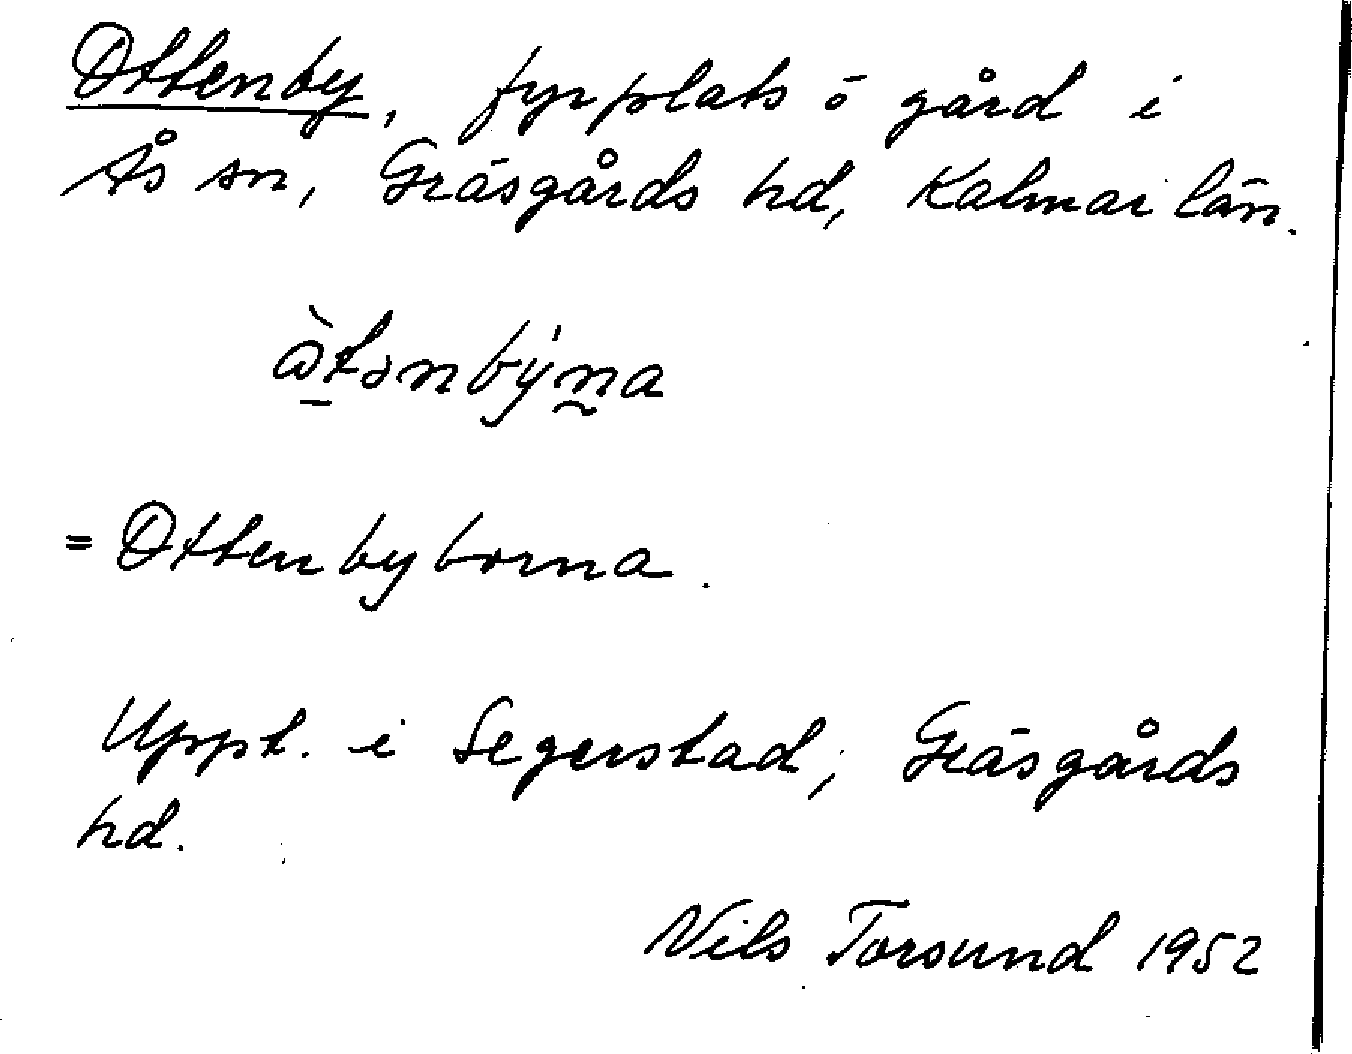 Ottenby, fyrplats o gård i
Ås sn, Gräsgårds hd, Kalmar län.
= Ottenbyborna.
Uppt. i Segerstad, Gräsgårds
hd.
Nils Torsund 1952